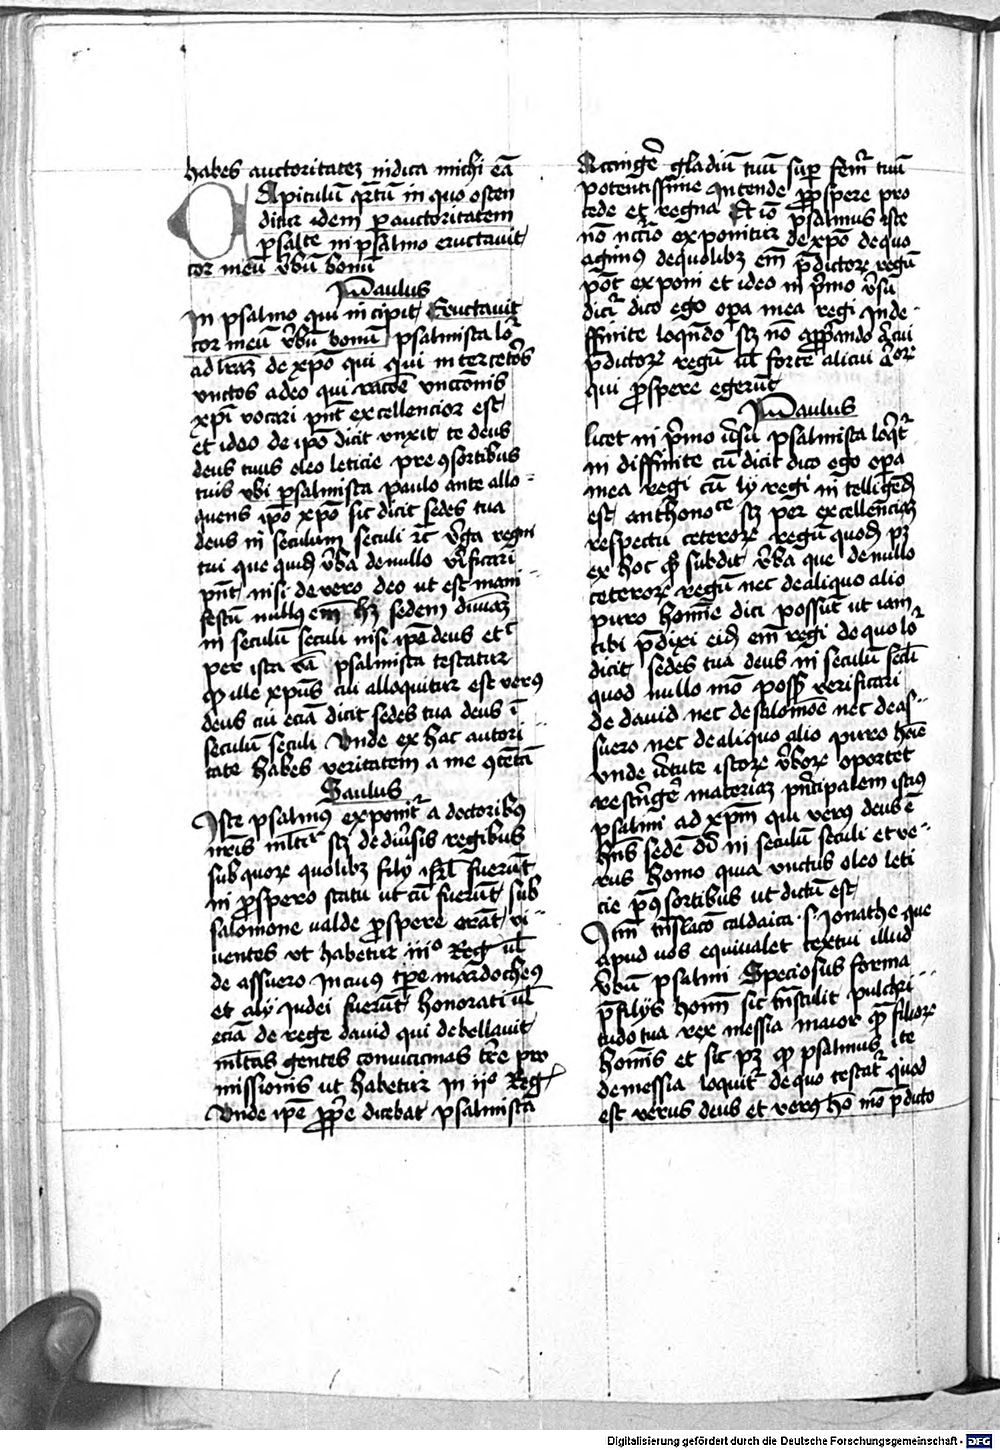 habes auctoritatez indica michi eā
Capiculū qrtū in quo osten
ditur idem p auctoritatem
psalte in psalmo eructauit
cor meū vbū bonū
Paulus
In psalmo qui incipit Eructauit
cor meū vbū bonū psalmista lor
ad lraz de xpo qui qui inter ceteros
vnctos a deo qui racōe vnctionis
xpi vocari pnt excellencior est
et ideo de ipo dicit vnxit te deus
deus tuus oleo leticie pre 9sortibus
tuis vbi psalmista paulo ante allo
quens ipo xpo sic dicit sedes tua
deus in seculum seculi rc vga regni
tui que quid vba de nullo vificari
pnt nisi de vero deo ut est mani
festū nullus em hz sedem diuiaz
in seculū seculi nisi ipe deus et
per ista psalmista testatur
q ille xpus cui alloquitur est verus
deus cū eciā dicit sedes tua deus ī
seculū seculi Vnde ex hac autori
tate habes veritatem a me 9tentā
Saulus
Iste psalmus exponitr a doctoribus
nris mltr sz de diusis regibus
sub quorz quolibz filij isrl fuerūt
in pspero statu ut cū fuerūt sub
salomone valde pspere erāt vi
uentes vt habetur iiio Reg vl
de assuero In cuius tpe mardocheus
et alij Judei fuerūt honorati vl
eciā de rege dauid qui debellauit
mltas gentes conuicinas tre pro
missionis ut habetur in iio Reg
Vnde ipe ppe dicebat psalmista
Accinge gladiū tuū sup femr tuū
potentissime Intende pspere pro
cede et regna Et io psalmus iste
nō nccrio exponitur de xpo de quo
agimus de quolibz em pdictorz regū
pōt exponi et ideo in pmo vsu
dicit dico ego opa mea regi Inde
ffinite loqndo sz nō apprando alicui
pdictorz regū vl forte alicui
qui pspere egerūt
Paulus
licet in pmo vsu psalmista loqtr
in diffinite cū dicit dico ego opa
mea regi cū ly regi in telligēd
est anthonoce sz per excellenciaz
respectu ceterorz regū quod pz
ex hoc q subdit vba que de nullo
ceterorz regū nec de aliquo alio
puro homīe dici possut ut iam
tibi pdixi eid em regi de quo lor
dicit sedes tua deus in seculū secli
quod nullo mō posset verificari
de dauid nec de salomōe nec de as
suero nec de aliquo alio puro hoīe
vnde vtute istorz vborz oportet
restrige materiaz pncipalem istius
psalmi ad xpm qui verus deus ē
hns sedē dei in seculū seculi et ve
rus homo quia vnctus oleo leti
cie p 9sortibus ut dictū est
Itm tnslaco caldaica s Jonathe que
apud uos equiualet textui illud
vbū psalmi Speciosus forma
pfilijs homn sic tnstulit pulcri
tudo tua rex messia maior q filiorz
homis et sic pz q psalmus iste
de messia loquitr de quo testatr quod
est verus deus et verus ho mō pdicto
Digitalisierung gefördert durch die Deutsche Forschungsgemeinschaft - DFG